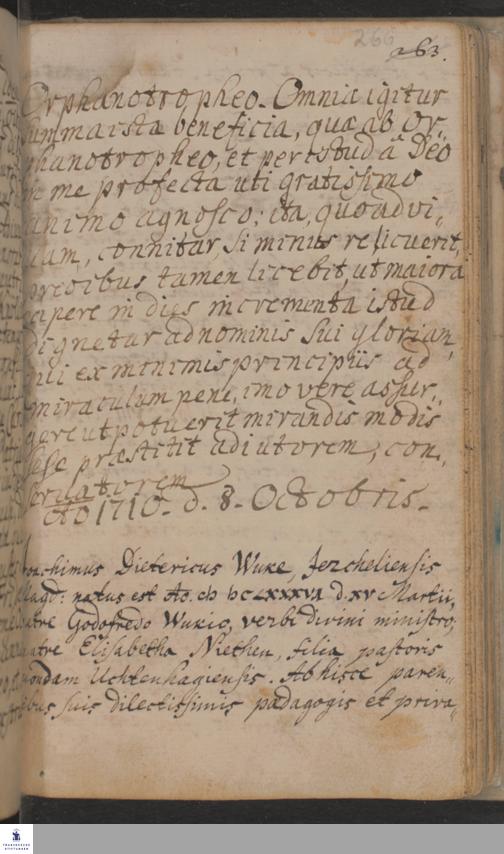 266
263.
Orphanotropheo. Omnia igitur
summa ista beneficia, quæ ab Or-
phanotropheo, et per istud â Deo
in me profecta uti gratissimo
animo agnosco; ita, quoad vi-
vam, connitar, si minus relicuerit,
precibus tamen licebit, ut maiora
capere in dies incrementa istud
dignetur ad nominis sui gloriam,
qui ex minimis principiis ad
miraculum pene, imo vere assur-
gere ut potuerit mirandis modis
sese præstitit adiutorem, con-
servatorem
cIɔ 1710. d. 8. Octobris.
Joachimus Dietericus Wuke, Jercheliensis
Magd: natus est Ao. cIɔ Iɔc LXXXVI d. XV Martii,
patre Godofredo Wukio, verbi divini ministro;
matre Elisabetha Niethen, filia pastoris
quondam Uchtenhagiensis. Ab hisce paren-
tibus suis dilectissimis pædagogis et priva-
FRANCKESCHE
STIFTUNGEN